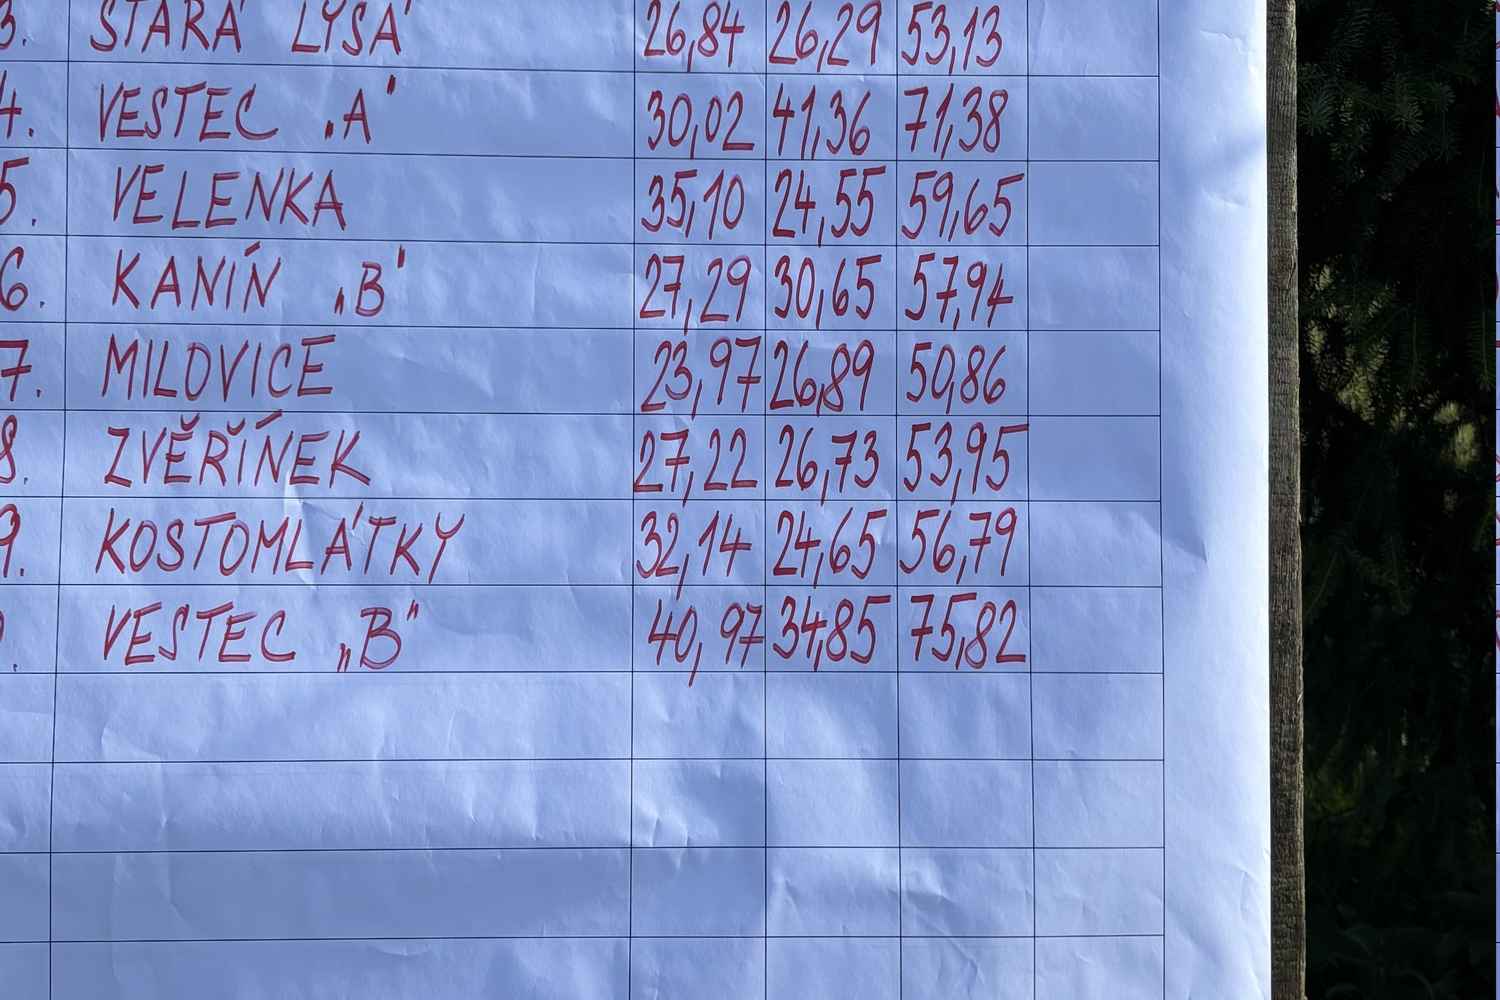 3. STARÁ LYSÁ 26,84 26,29 53,13
4. VESTEC „A" 30,02 41,36 71,38
5. VELENKA 35,10 24,55 59,65
6. KANÍN „B" 27,29 30,65 57,94
7. MILOVICE 23,97 26,89 50,86
8. ZVĚŘÍNEK 27,22 26,73 53,95
9. KOSTOMLÁTKY 32,14 24,65 56,79
VESTEC „B" 40,97 34,85 75,82